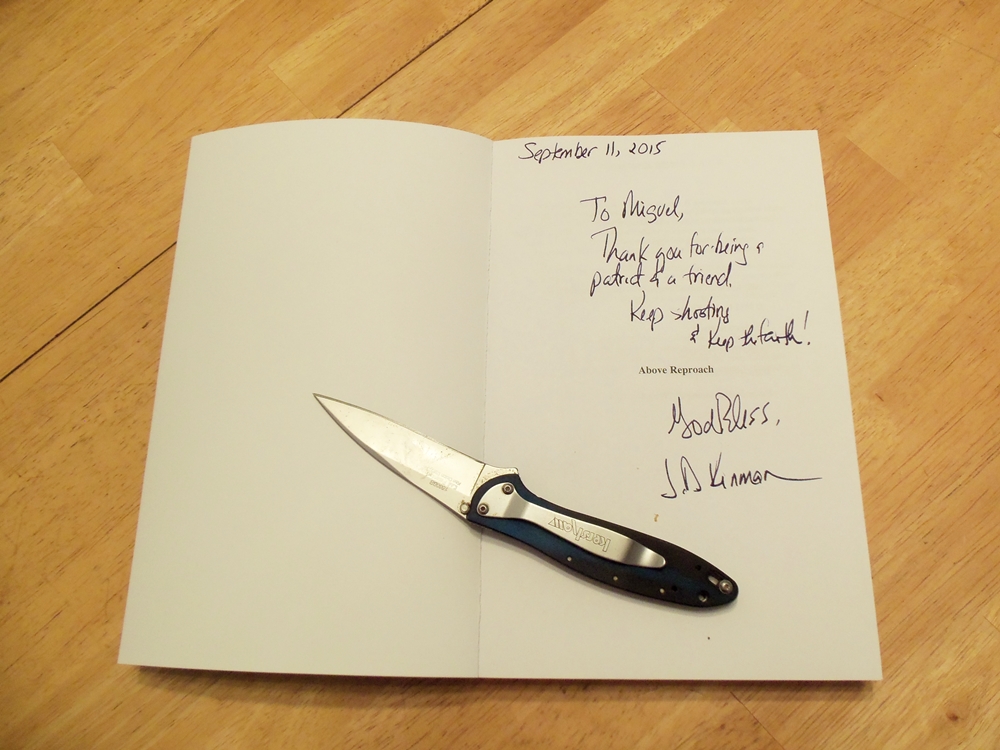 September 11, 2015
To Miguel,
Thank you for being a
patriot & a friend.
Keep shooting
& keep the faith!
Above Reproach
God Bless,
J.D Kinman
Kershaw